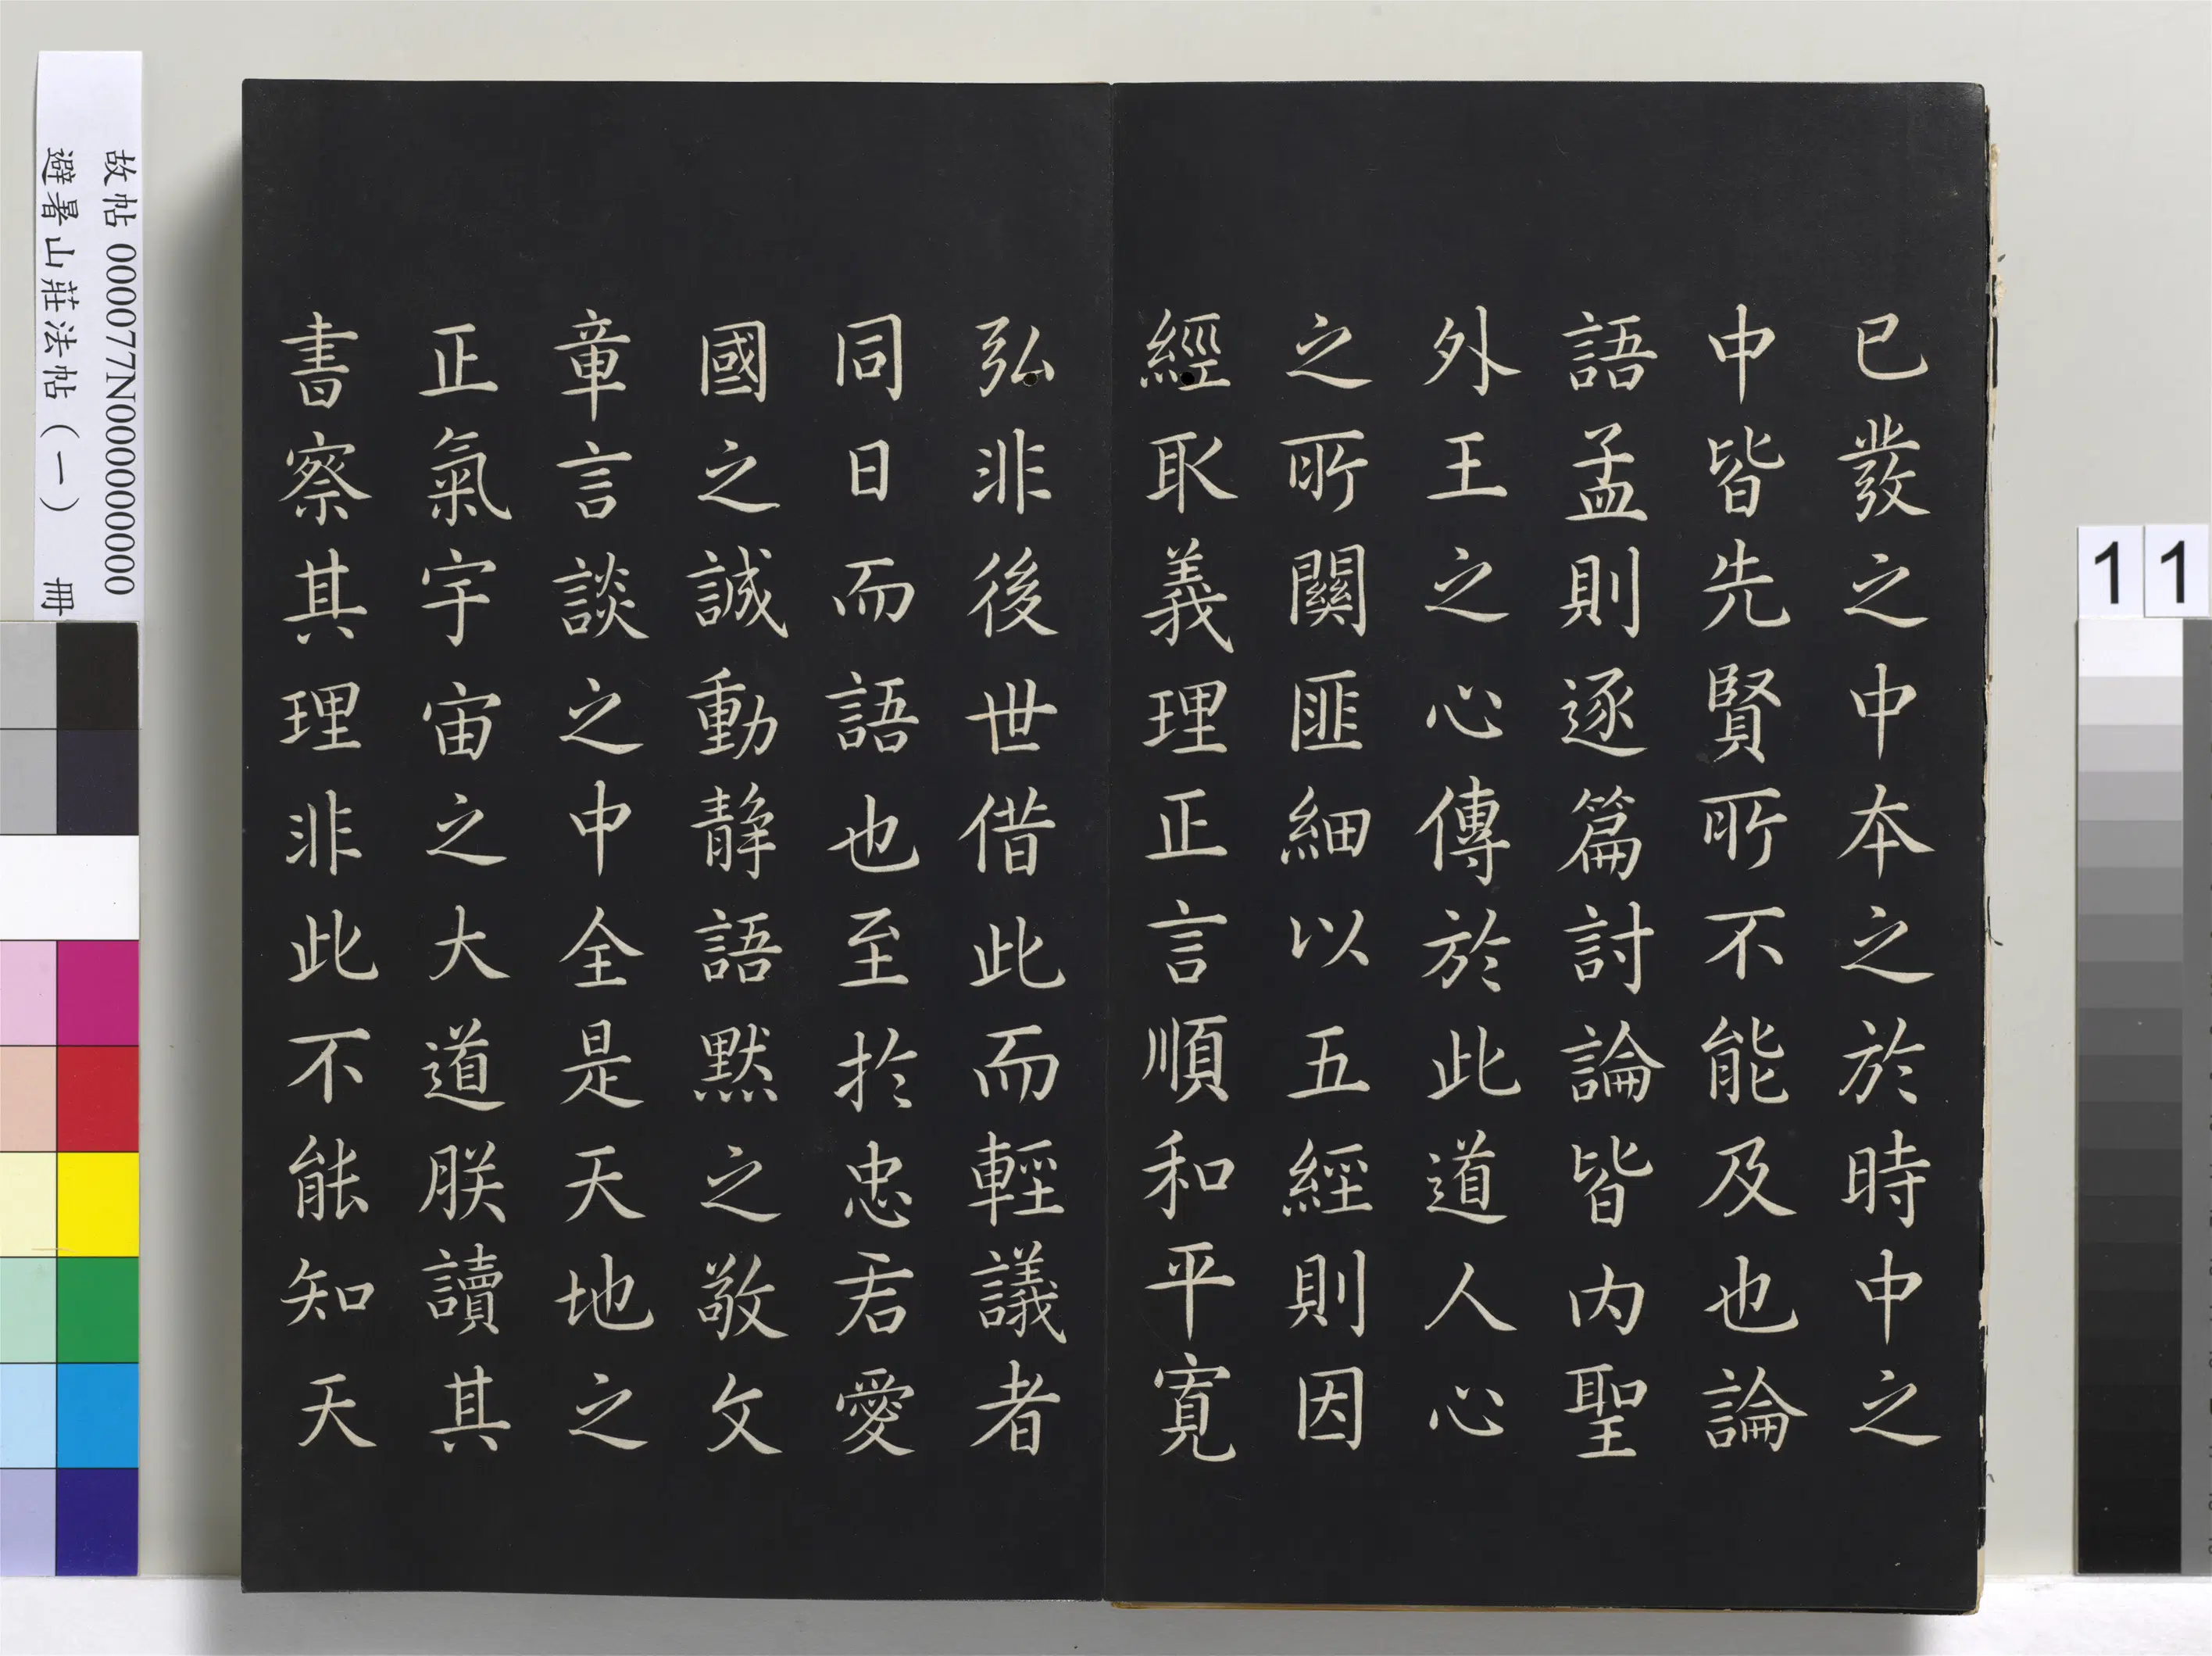 已發之中本之於時中之
中皆先賢所不能及也論
語孟則逐篇討論皆内聖
外王之心傳於此道人心
之所關匪細以五經則因
經取義理正言順和平寬
弘非後世借此而輕議者
同日而語也至於忠君愛
國之誠動静語默之敬文
章言談之中全是天地之
正氣宇宙之大道朕讀其
書察其理非此不能知天
故帖 000077N000000000
避暑山莊法帖（一） 冊
11